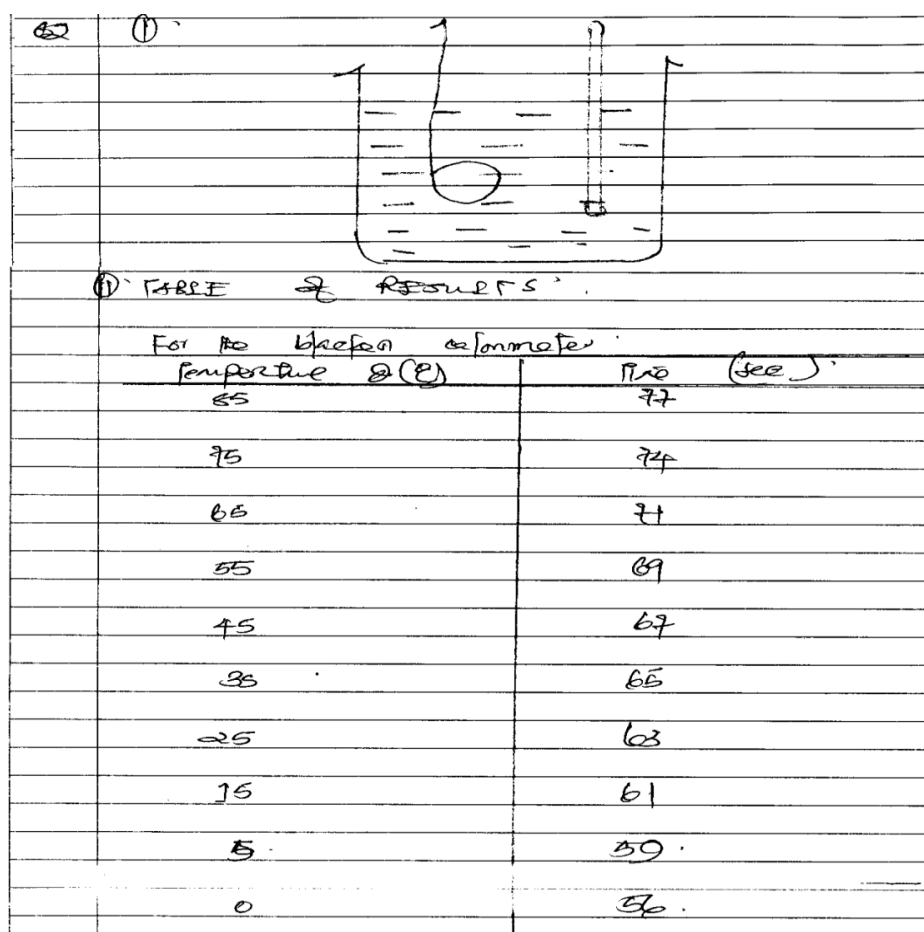 02 (i)
(ii) TABLE of RESULTS.
For the blacken calorimeter
Temperature θ (℃) Time (sec)
85 77
75 74
65 71
55 69
45 67
35 65
25 63
15 61
5 59
0 56